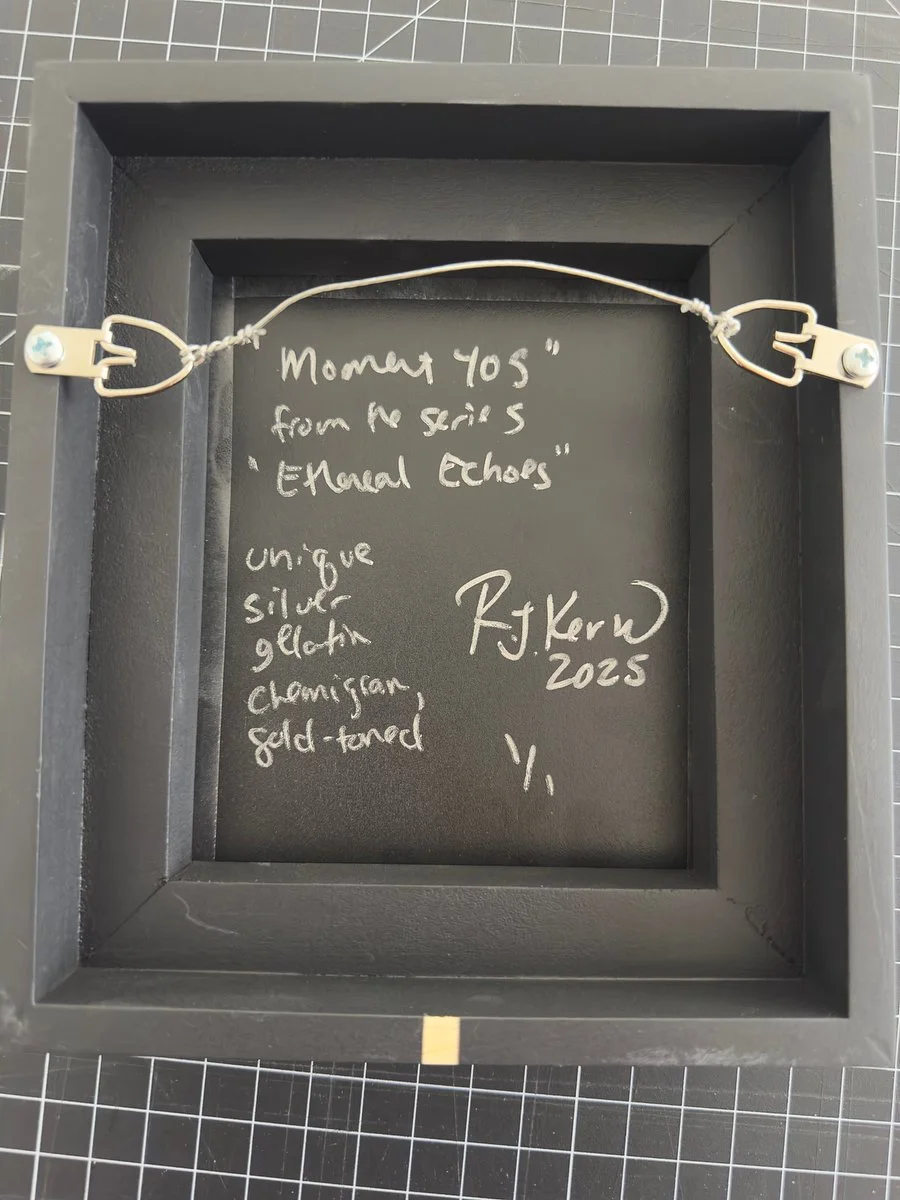 "Moment 405"
from the series
"Ethereal Echoes"
unique
silver
gelatin
chemigram,
gold-toned
R.J. Kern
2025
1/1